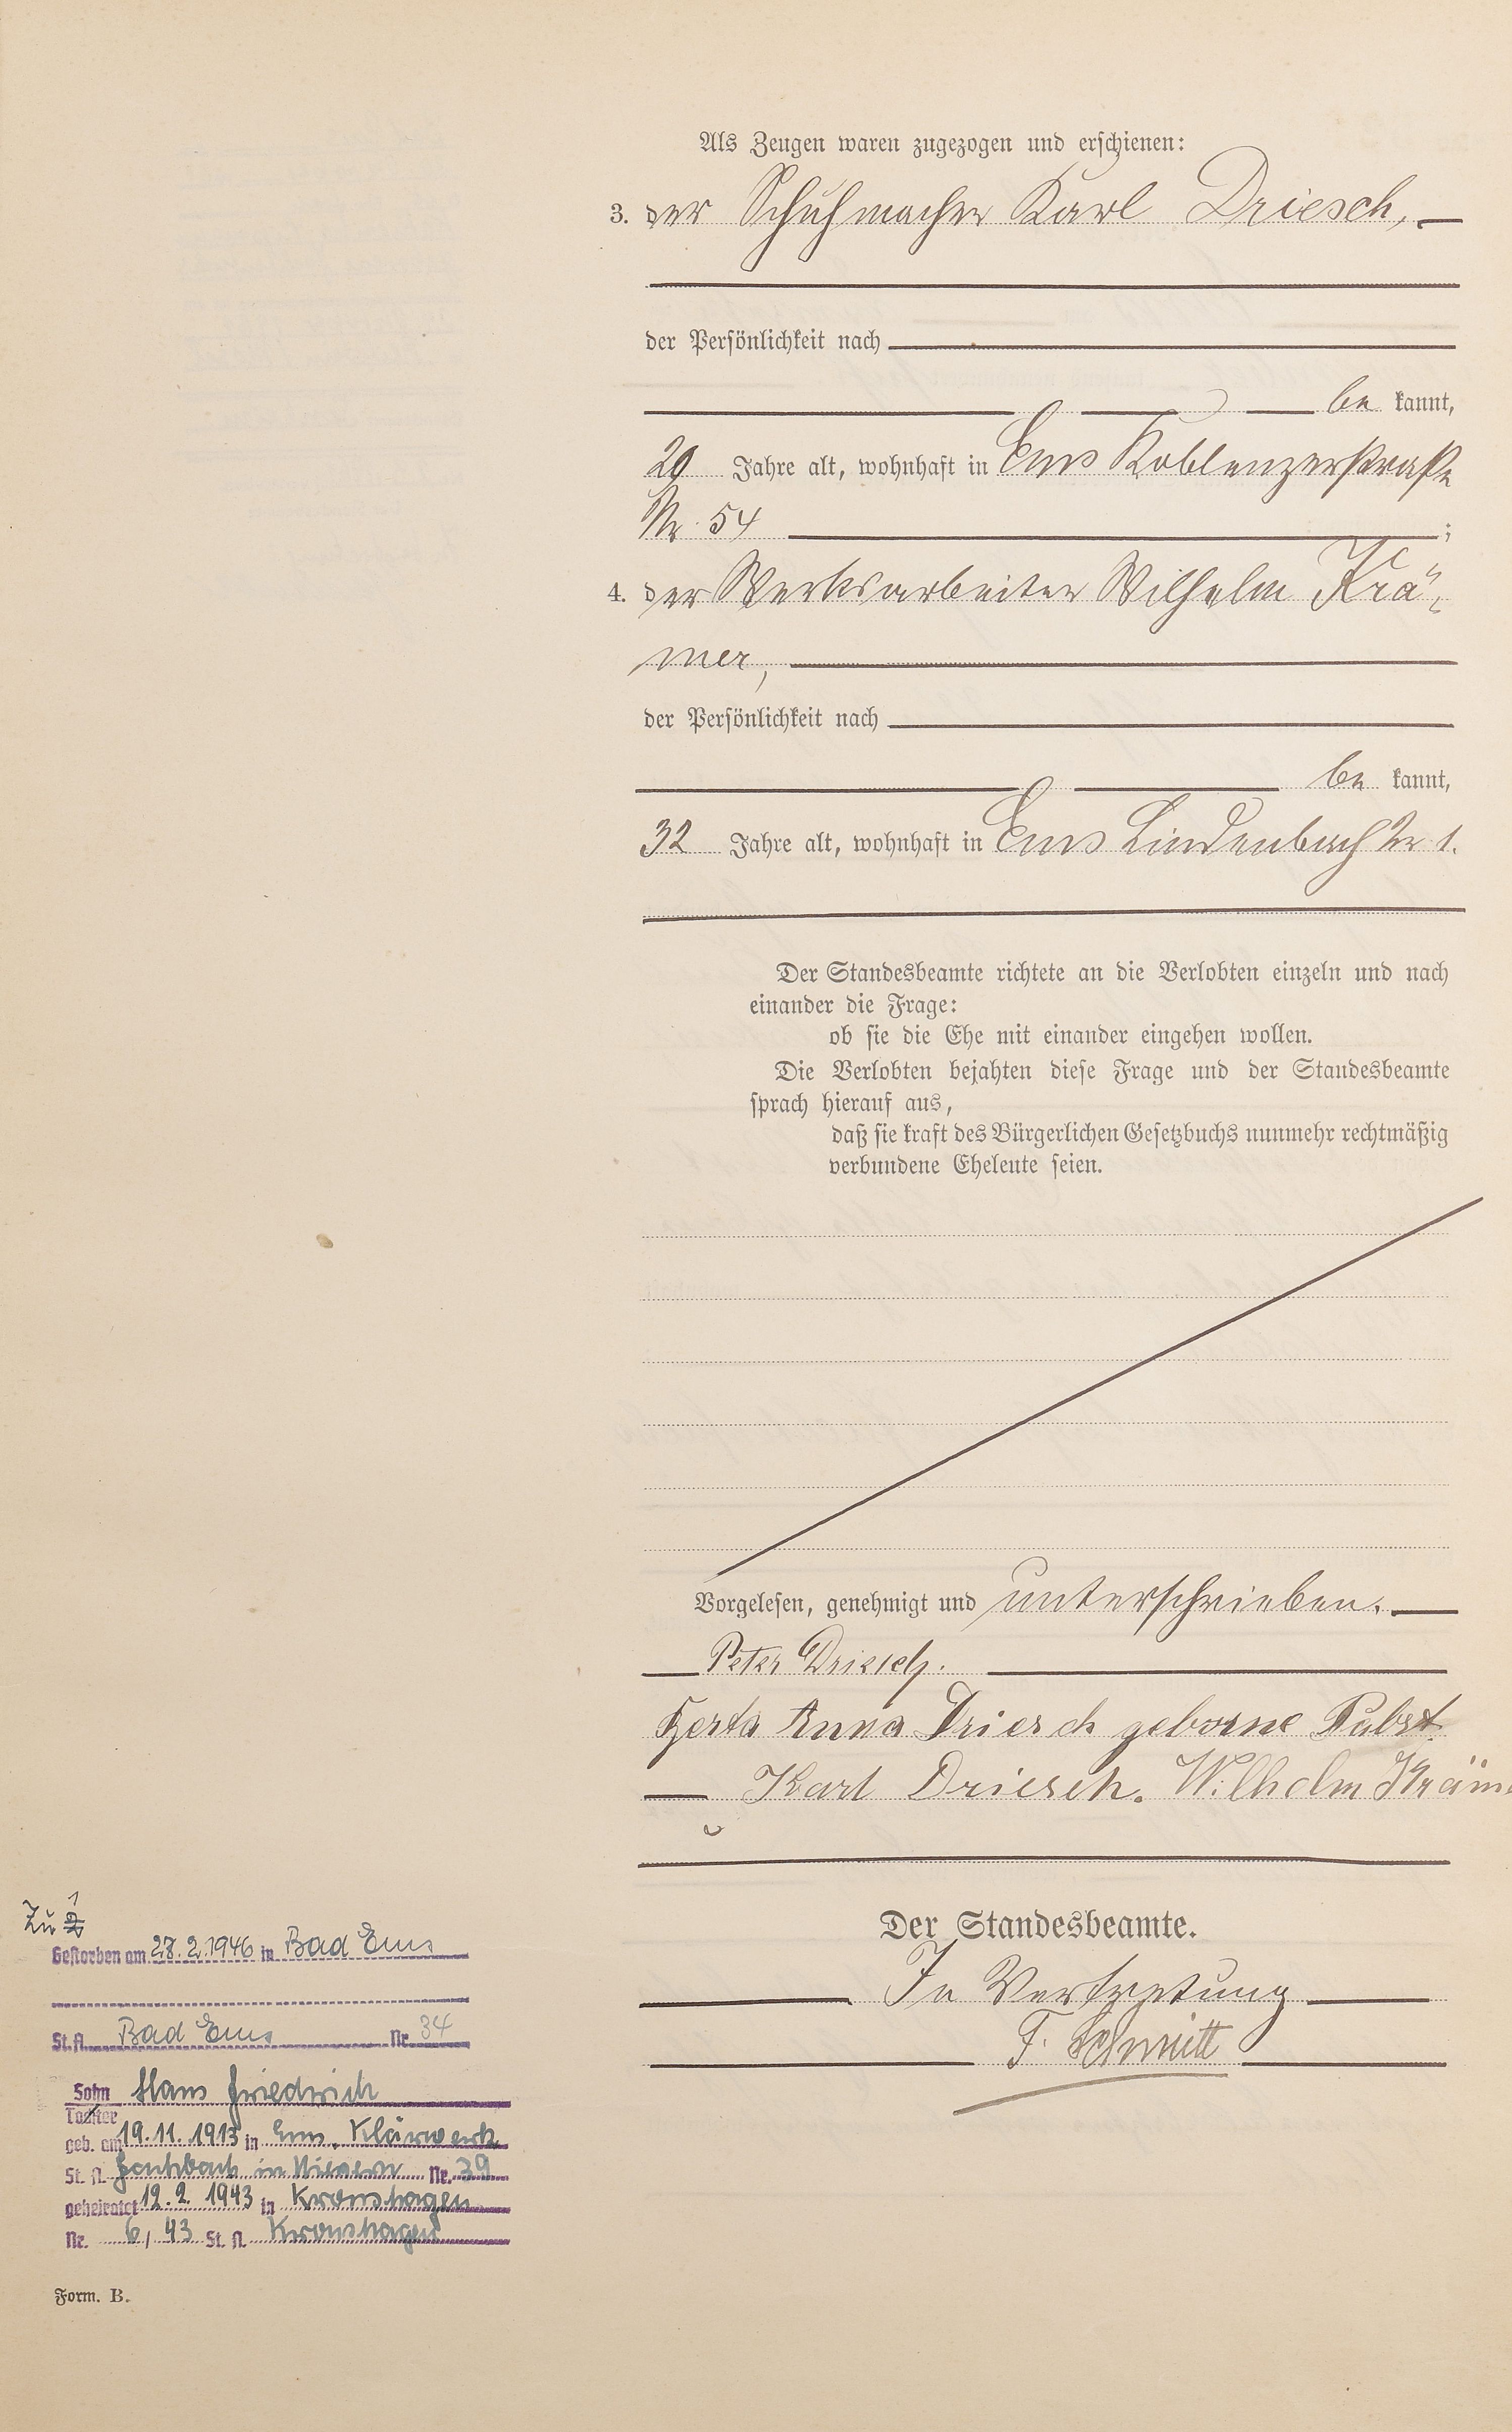 Als Zeugen waren zugezogen und erschienen:
3. der Schuhmacher Karl Driesch,
der Persönlichkeit nach
be kannt,
20 Jahre alt, wohnhaft in Ems Koblenzerstraße
Nr. 54 ;
4. der Werksarbeiter Wilhelm Krä-
mer,
der Persönlichkeit nach
be kannt,
32 Jahre alt, wohnhaft in Ems Lindenbach Nr 1.
Der Standesbeamte richtete an die Verlobten einzeln und nach
einander die Frage:
ob sie die Ehe mit einander eingehen wollen.
Die Verlobten bejahten diese Frage und der Standesbeamte
sprach hierauf aus,
daß sie kraft des Bürgerlichen Gesetzbuchs nunmehr rechtmäßig
verbundene Eheleute seien.
Vorgelesen, genehmigt und unterschrieben.
Peter Driesch.
Herta Anna Driesch geborne Pabst
Karl Driesch. Wilhelm Kräm
Der Standesbeamte.
In Vertretung
F. Schmitt
Zu 1
Gestorben am 28.2.1946 in Bad Ems
St. A. Bad Ems Nr. 34
Sohn Hans Friedrich
Tochter
geb. am 19.11.1913 in Ems, Klärwerk
St. A. Fachbach in Nievern Nr. 39
geheiratet 12.2.1943 in Kronshagen
Nr. 6/43 St. A. Kronshagen
Form. B.